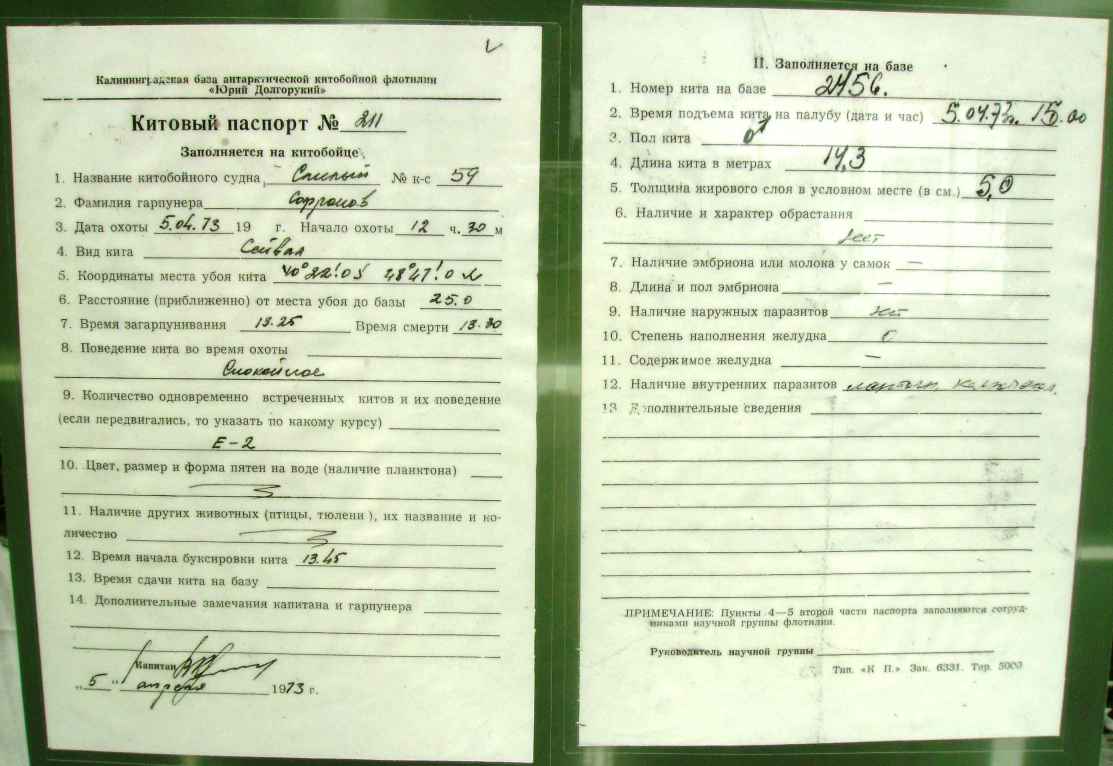 Калининградская база антарктической китобойной флотилии
«Юрий Долгорукий»
Китовый паспорт № 211
Заполняется на китобойце
1. Название китобойного судна Смелый № к-с 59
2. Фамилия гарпунера Сафронов
3. Дата охоты 5.04.73 19 г. Начало охоты 12 ч. 30 м
4. Вид кита Сейвал
5. Координаты места убоя кита 40°22!0 S 28°47!0
6. Расстояние (приближенно) от места убоя до базы 25.0
7. Время загарпунивания 13.25 Время смерти 13.30
8. Поведение кита во время охоты
Спокойное
9. Количество одновременно встреченных китов и их поведение
(если передвигались, то указать по какому курсу)
E-2
10. Цвет, размер и форма пятен на воде (наличие планктона)
11. Наличие других животных (птицы, тюлени), их название и ко-
личество
12. Время начала буксировки кита 13.45
13. Время сдачи кита на базу
14. Дополнительные замечания капитана и гарпунера
Капитан
„5" апреля 1973 г.
II. Заполняется на базе
1. Номер кита на базе 2456.
2. Время подъема кита на палубу (дата и час) 5.04.73г. 15.00
3. Пол кита ♂
4. Длина кита в метрах 14,3
5. Толщина жирового слоя в условном месте (в см.) 5,0
6. Наличие и характер обрастания
нет
7. Наличие эмбриона или молока у самок —
8. Длина и пол эмбриона —
9. Наличие наружных паразитов нет
10. Степень наполнения желудка 0
11. Содержимое желудка —
12. Наличие внутренних паразитов
13 Дополнительные сведения
ПРИМЕЧАНИЕ: Пункты 4—5 второй части паспорта заполняются сотруд-
никами научной группы флотилии.
Руководитель научной группы
Тип. «К П.» Зак. 6331. Тир. 5000